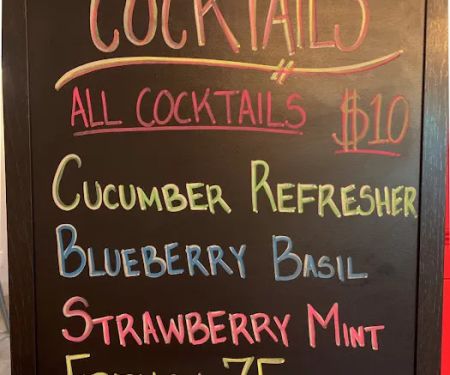 COCKTAILS
ALL COCKTAILS $10
CUCUMBER REFRESHER
BLUEBERRY BASIL
STRAWBERRY MINT
FRENCH 75